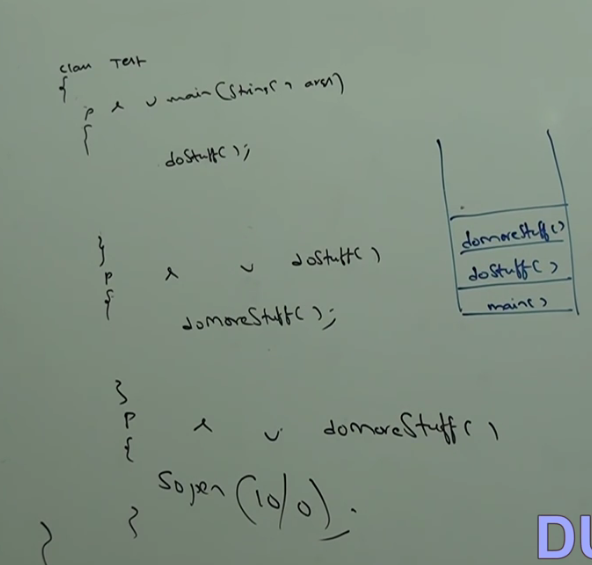 class Test
{
p s v main(String[] args)
{
doStuff();
}
p s v doStuff()
{
domoreStuff();
}
p s v domoreStuff()
{
Sopln(10/0);
}
}
domoreStuff()
doStuff()
main()
DU